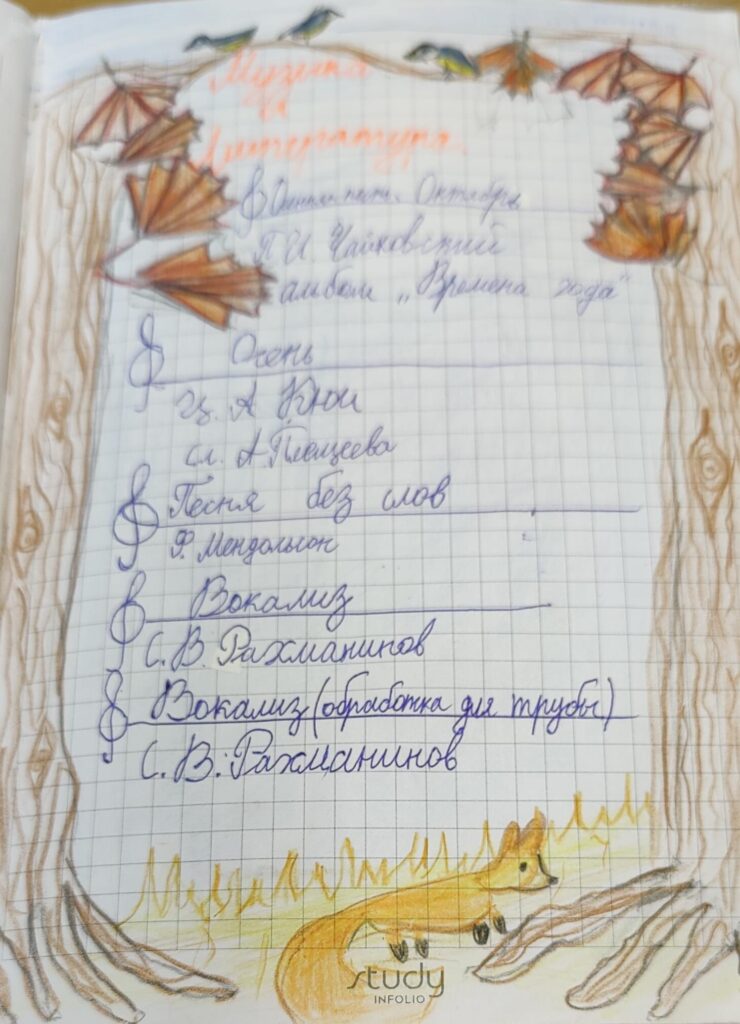 Музыка
и
Литература.
Осенняя песнь. Октябрь
П И Чайковский
альбом „Времена года"
Осень
Ц. А Кюи
сл. А Плещеева
Песня без слов
Ф. Мендольсон
Вокализ
С. В. Рахманинов
Вокализ (обработка для трубы)
С. В. Рахманинов
study
INFOLIO